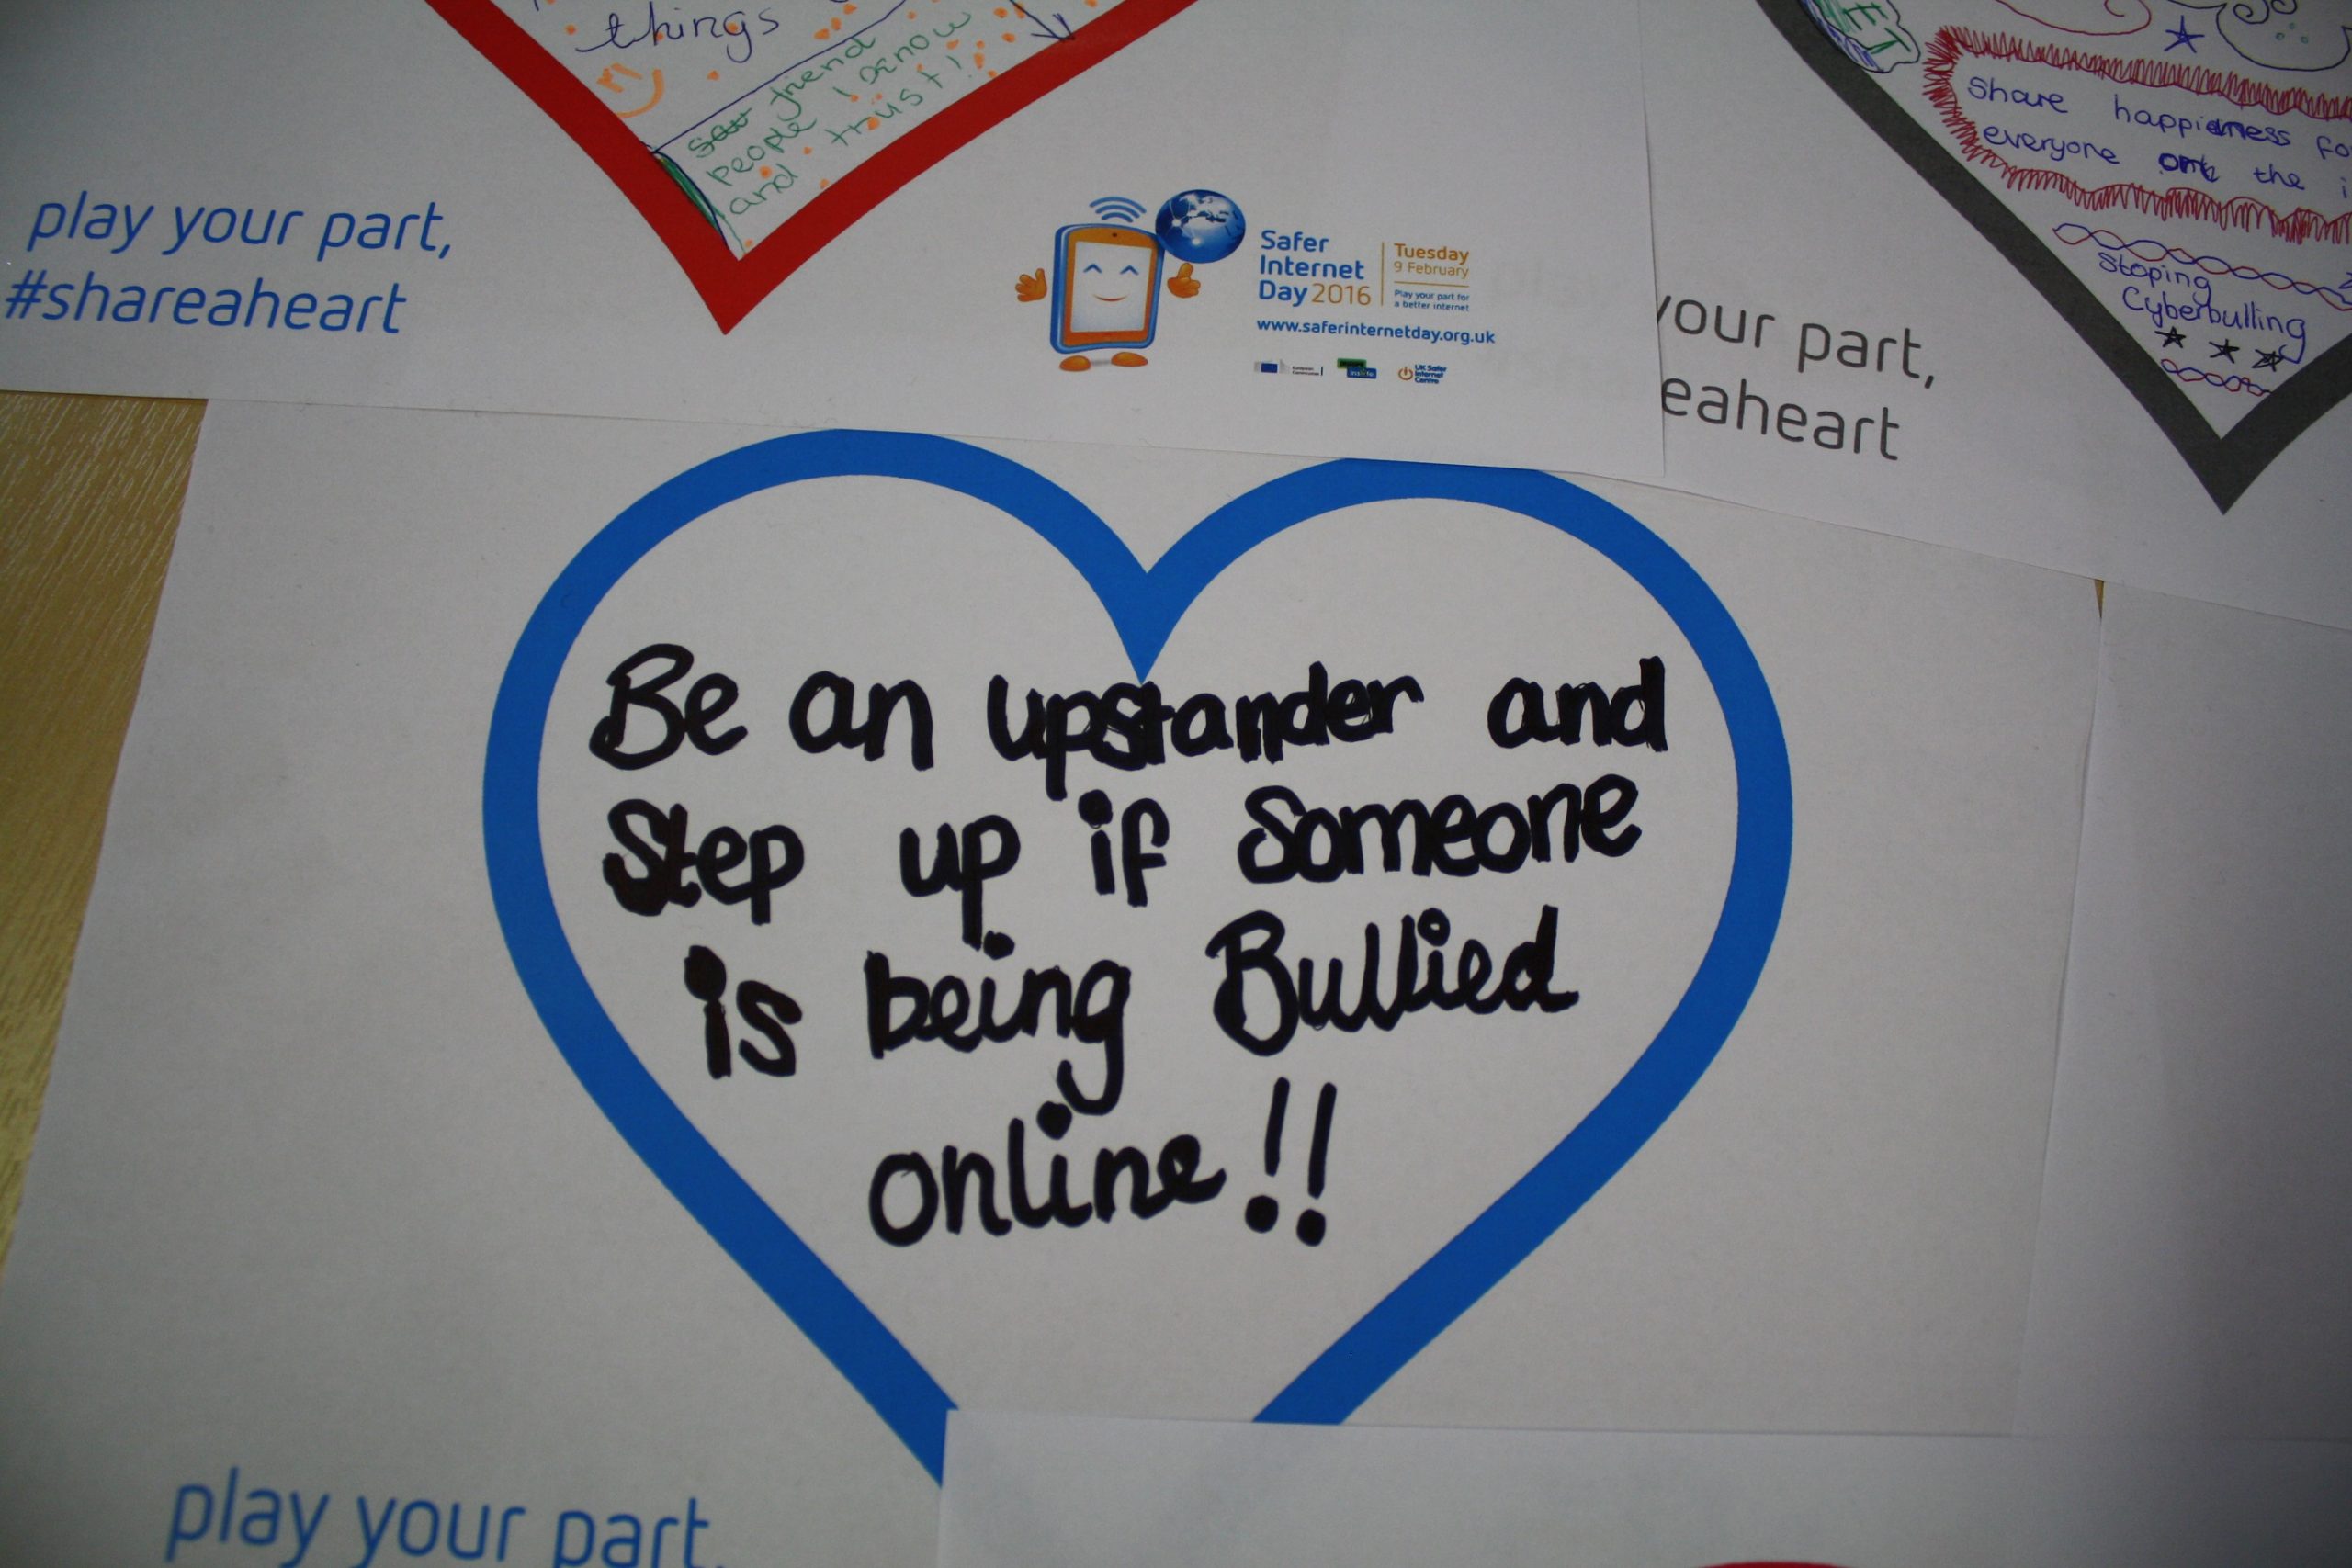 things
friend
people I know
and trust!
play your part,
#shareaheart
Safer
Internet
Day 2016
Tuesday
9 February
Play your part for
a better internet
www.saferinternetday.org.uk
European
Commission
UK Safer
Internet
Centre
Share happieness fo
everyone on the i
Stoping
Cyberbulling
your part,
eaheart
Be an upstander and
Step up if Someone
is being Bullied
online!!
play your part,